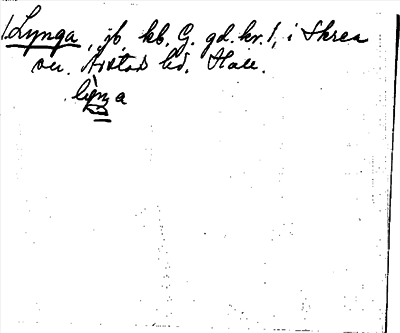 1 Lynga, jb. kb. G. gd. kr. 1, i Skrea
sn. Årstad hd. Hall.
lỳnga